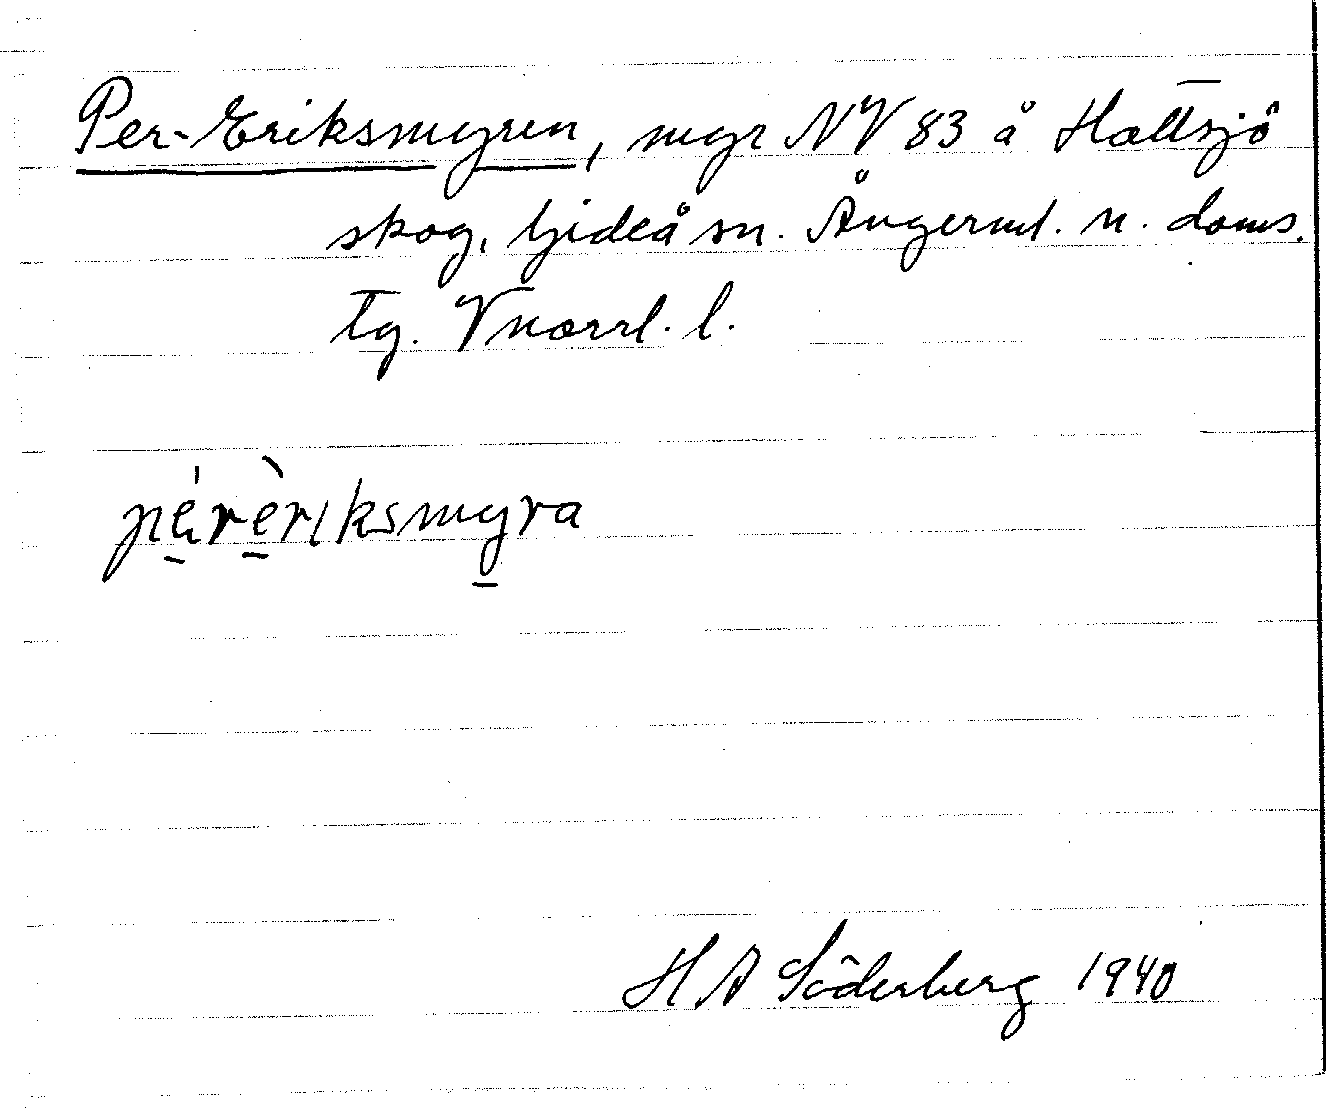 Per-Eriksmyren, myr NV 83 å Hattsjö
skog, Gideå sn. Ångerml. n. doms.
tg. Vnorrl. l.
pérèriksmyra
H A Söderberg 1940